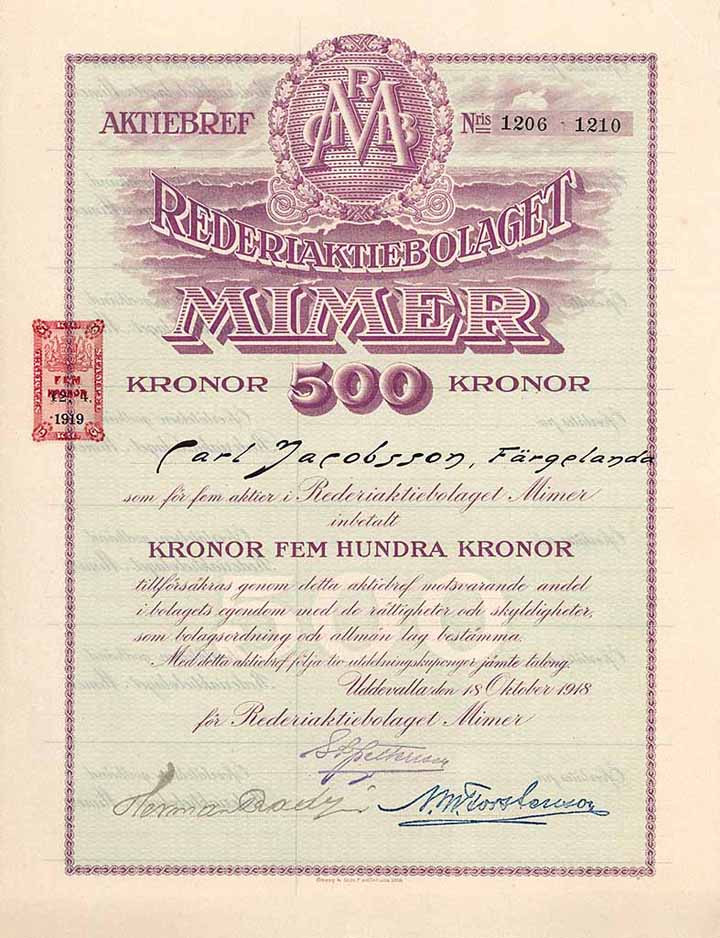 RMAB
AKTIEBREF
Nris 1206 - 1210
REDERIAKTIEBOLAGET
MIMER
KRONOR 500 KRONOR
STÄMPEL
FEM
KRONOR
12. 4.
1919
Carl Jacobsson, Färgelanda
som för fem aktier i Rederiaktiebolaget Mimer
inbetalt
KRONOR FEM HUNDRA KRONOR
tillförsäkras genom detta aktiebref motsvarande andel
i bolagets egendom med de rättigheter och skyldigheter,
som bolagsordning och allmän lag bestämma.
Med detta aktiebref följa tio utdelningskuponger jämte talong.
Uddevalla den 18 Oktober 1918
för Rederiaktiebolaget Mimer